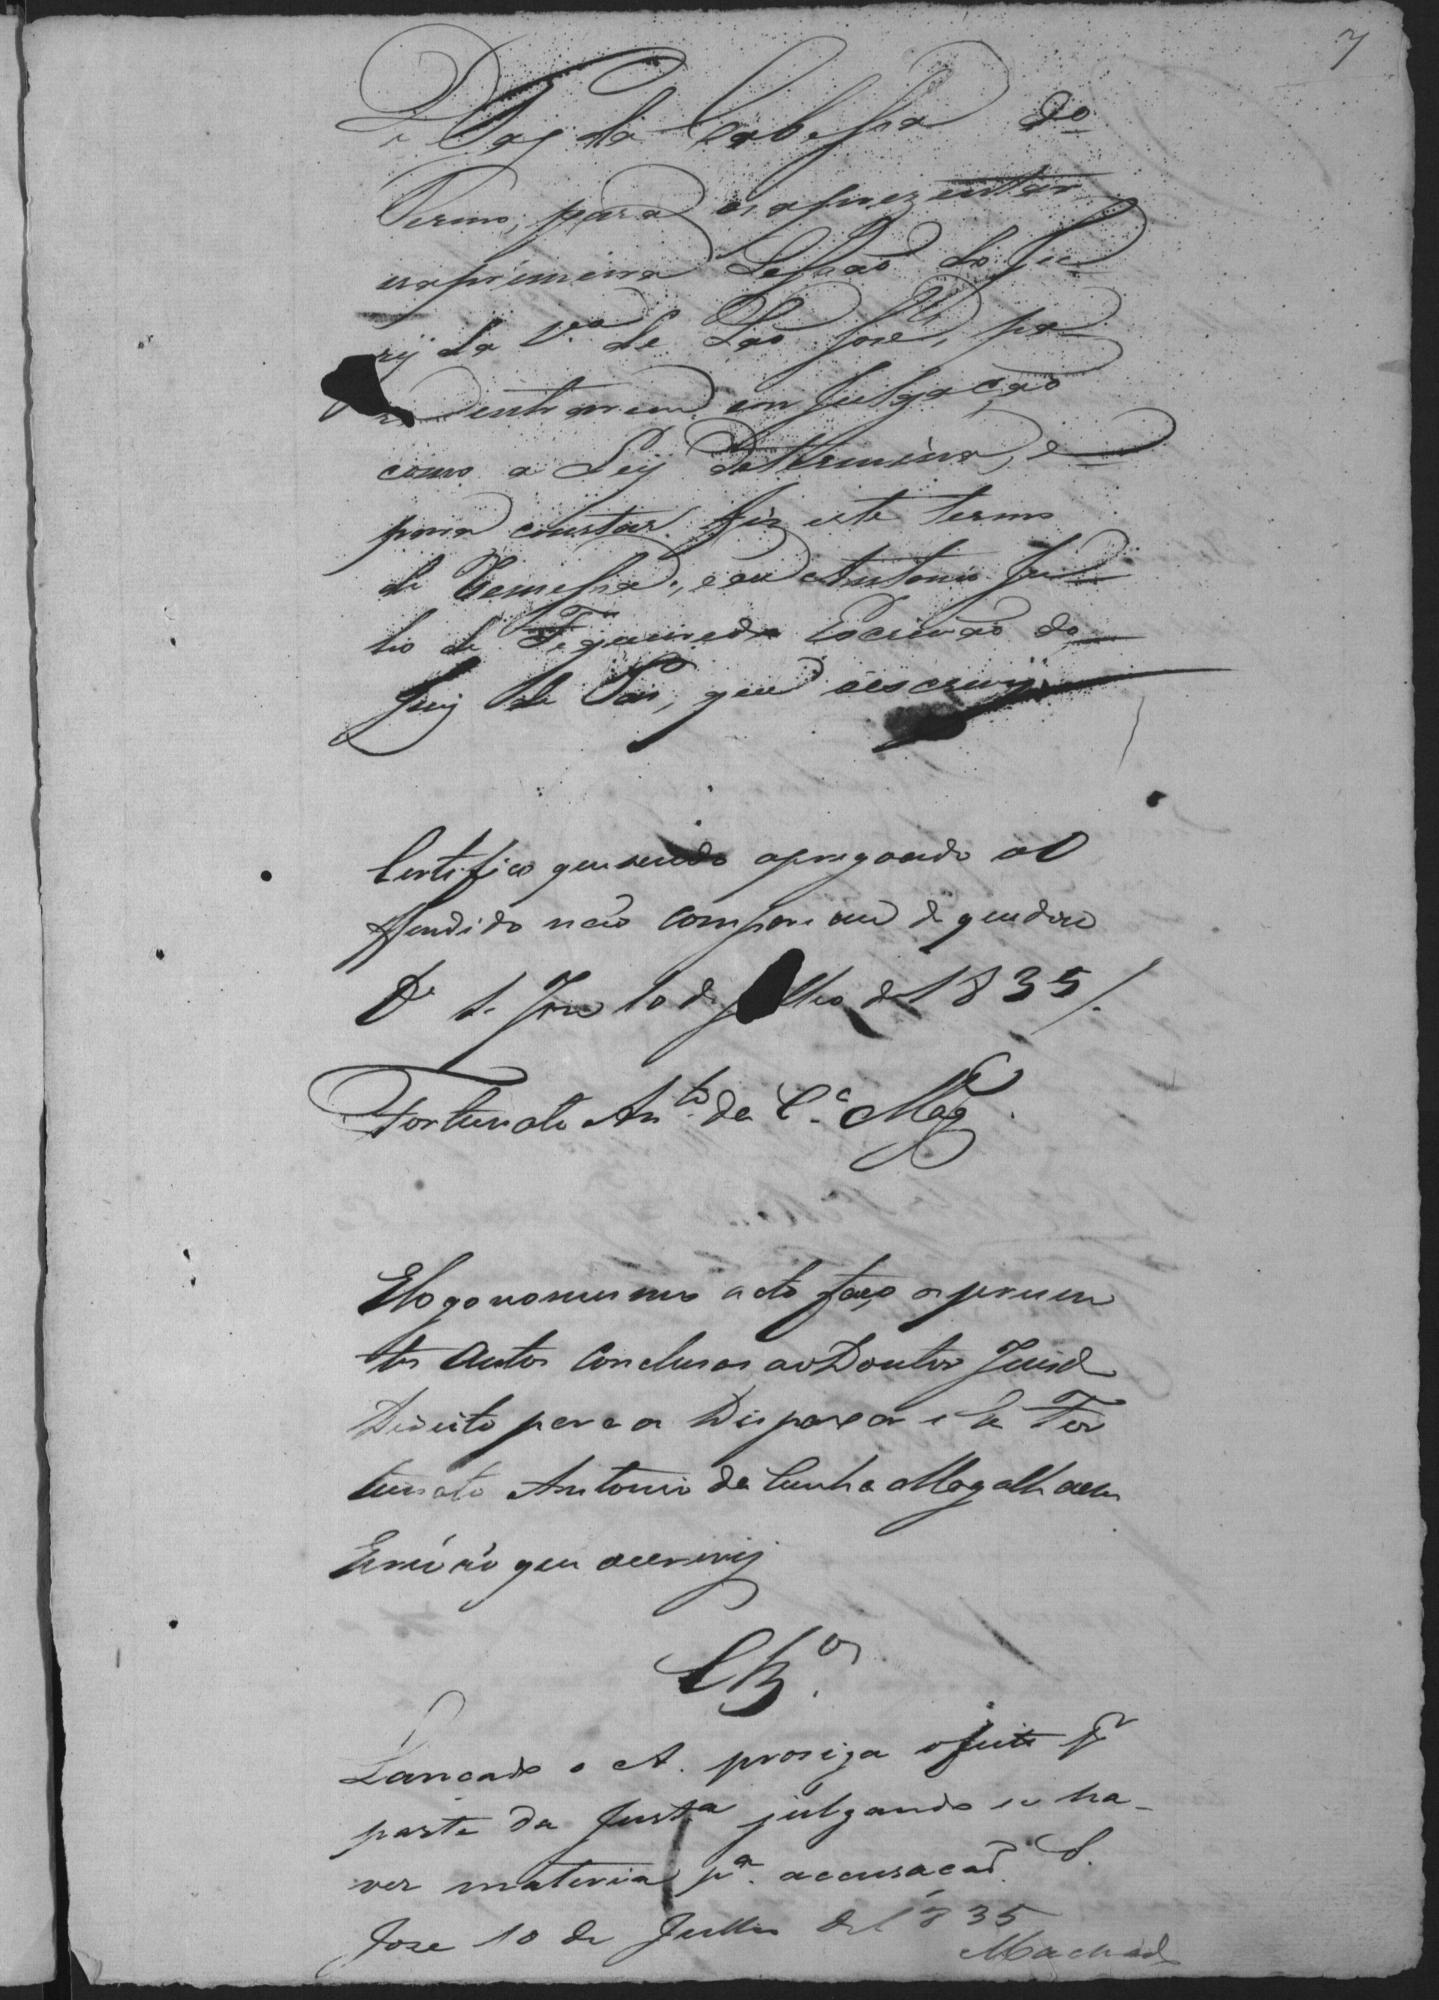 7
de Paz da Cabessa do
Termo, para as aprezentar
na primeira Sessaõ do Ju
ry da V.ª de Saõ José, pa
ra entrarem em Julgaçaõ
como a Ley determina, e
para constar fiz este termo
de Remessa; e eu Antonio Ju
lio de Figueiredo Escrivaõ do
Juiz de Paz, que o escrevy
Certifico que sendo apregoado o O
ffendido não compareceu de que dou
fé S. Jose 10 de Julho de 1835/.
Fortunato An.to da C.ª Mag.es
E logo no mesmo acto faço os prezen
tes autos conclusos ao Doutor Juis de
Direito para os Despaxar e Eu For
tunato Antonio da Cunha Magalhaens
Escrivão que o escrevij
Cl.os
Lançado o A. prosiga o feito p.r
parte da Just.ª julgando se ha-
ver materia p.ª accusacaõ. S.
Jose 10 de Julho de 1835
Machado